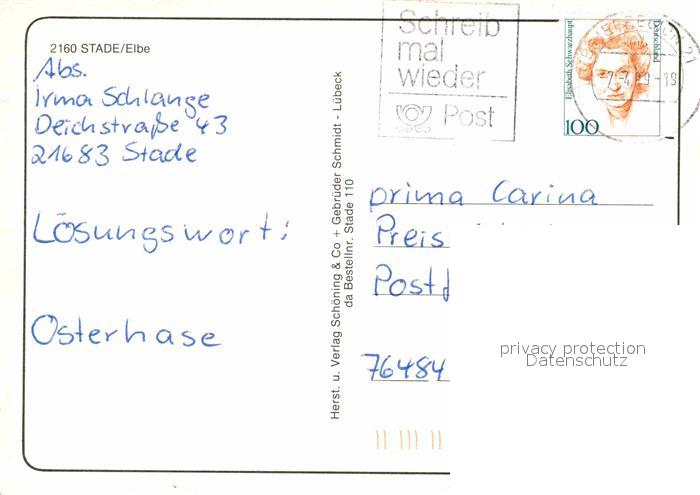 2160 STADE/Elbe
Abs.
Irma Schlange
Deichstraße 43
21683 Stade
Lösungswort:
Osterhase
Herst. u. Verlag Schöning & Co + Gebrüder Schmidt - Lübeck
da Bestellnr. Stade 110
Schreib
mal
wieder
Post
Elisabeth Schwarzhaupt
Deutschland
100
21
prima Carina
Preis
76484
privacy protection
Datenschutz